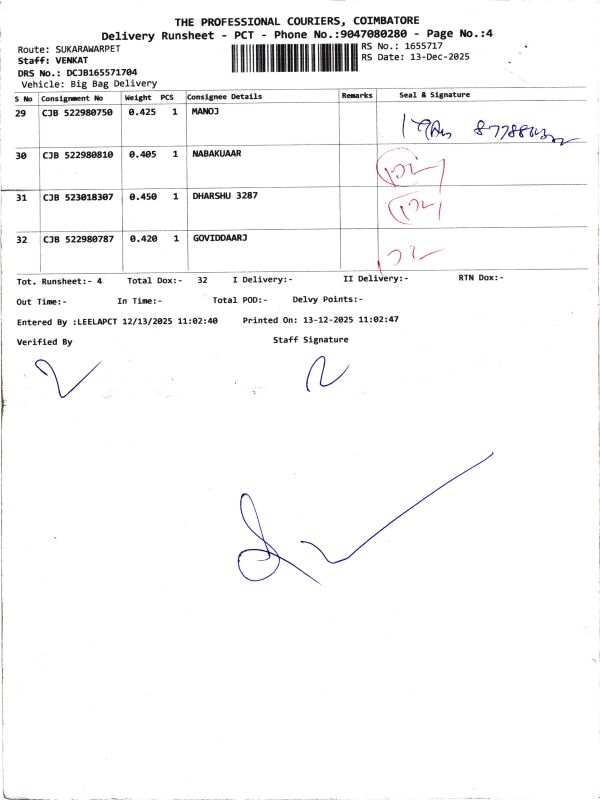 THE PROFESSIONAL COURIERS, COIMBATORE
Delivery Runsheet - PCT - Phone No.:9047080280 - Page No.:4
Route: SUKARAWARPET RS No.: 1655717
Staff: VENKAT RS Date: 13-Dec-2025
DRS No.: DCJB165571704
Vehicle: Big Bag Delivery
S No Consignment No Weight PCS Consignee Details Remarks Seal & Signature
29 CJB 522980750 0.425 1 MANOJ
30 CJB 522980810 0.405 1 NABAKUAAR
31 CJB 523018307 0.450 1 DHARSHU 3287
32 CJB 522980787 0.420 1 GOVIDDAARJ
Tot. Runsheet:- 4 Total Dox:- 32 I Delivery:- II Delivery:- RTN Dox:-
Out Time:- In Time:- Total POD:- Delvy Points:-
Entered By :LEELAPCT 12/13/2025 11:02:40 Printed On: 13-12-2025 11:02:47
Verified By Staff Signature